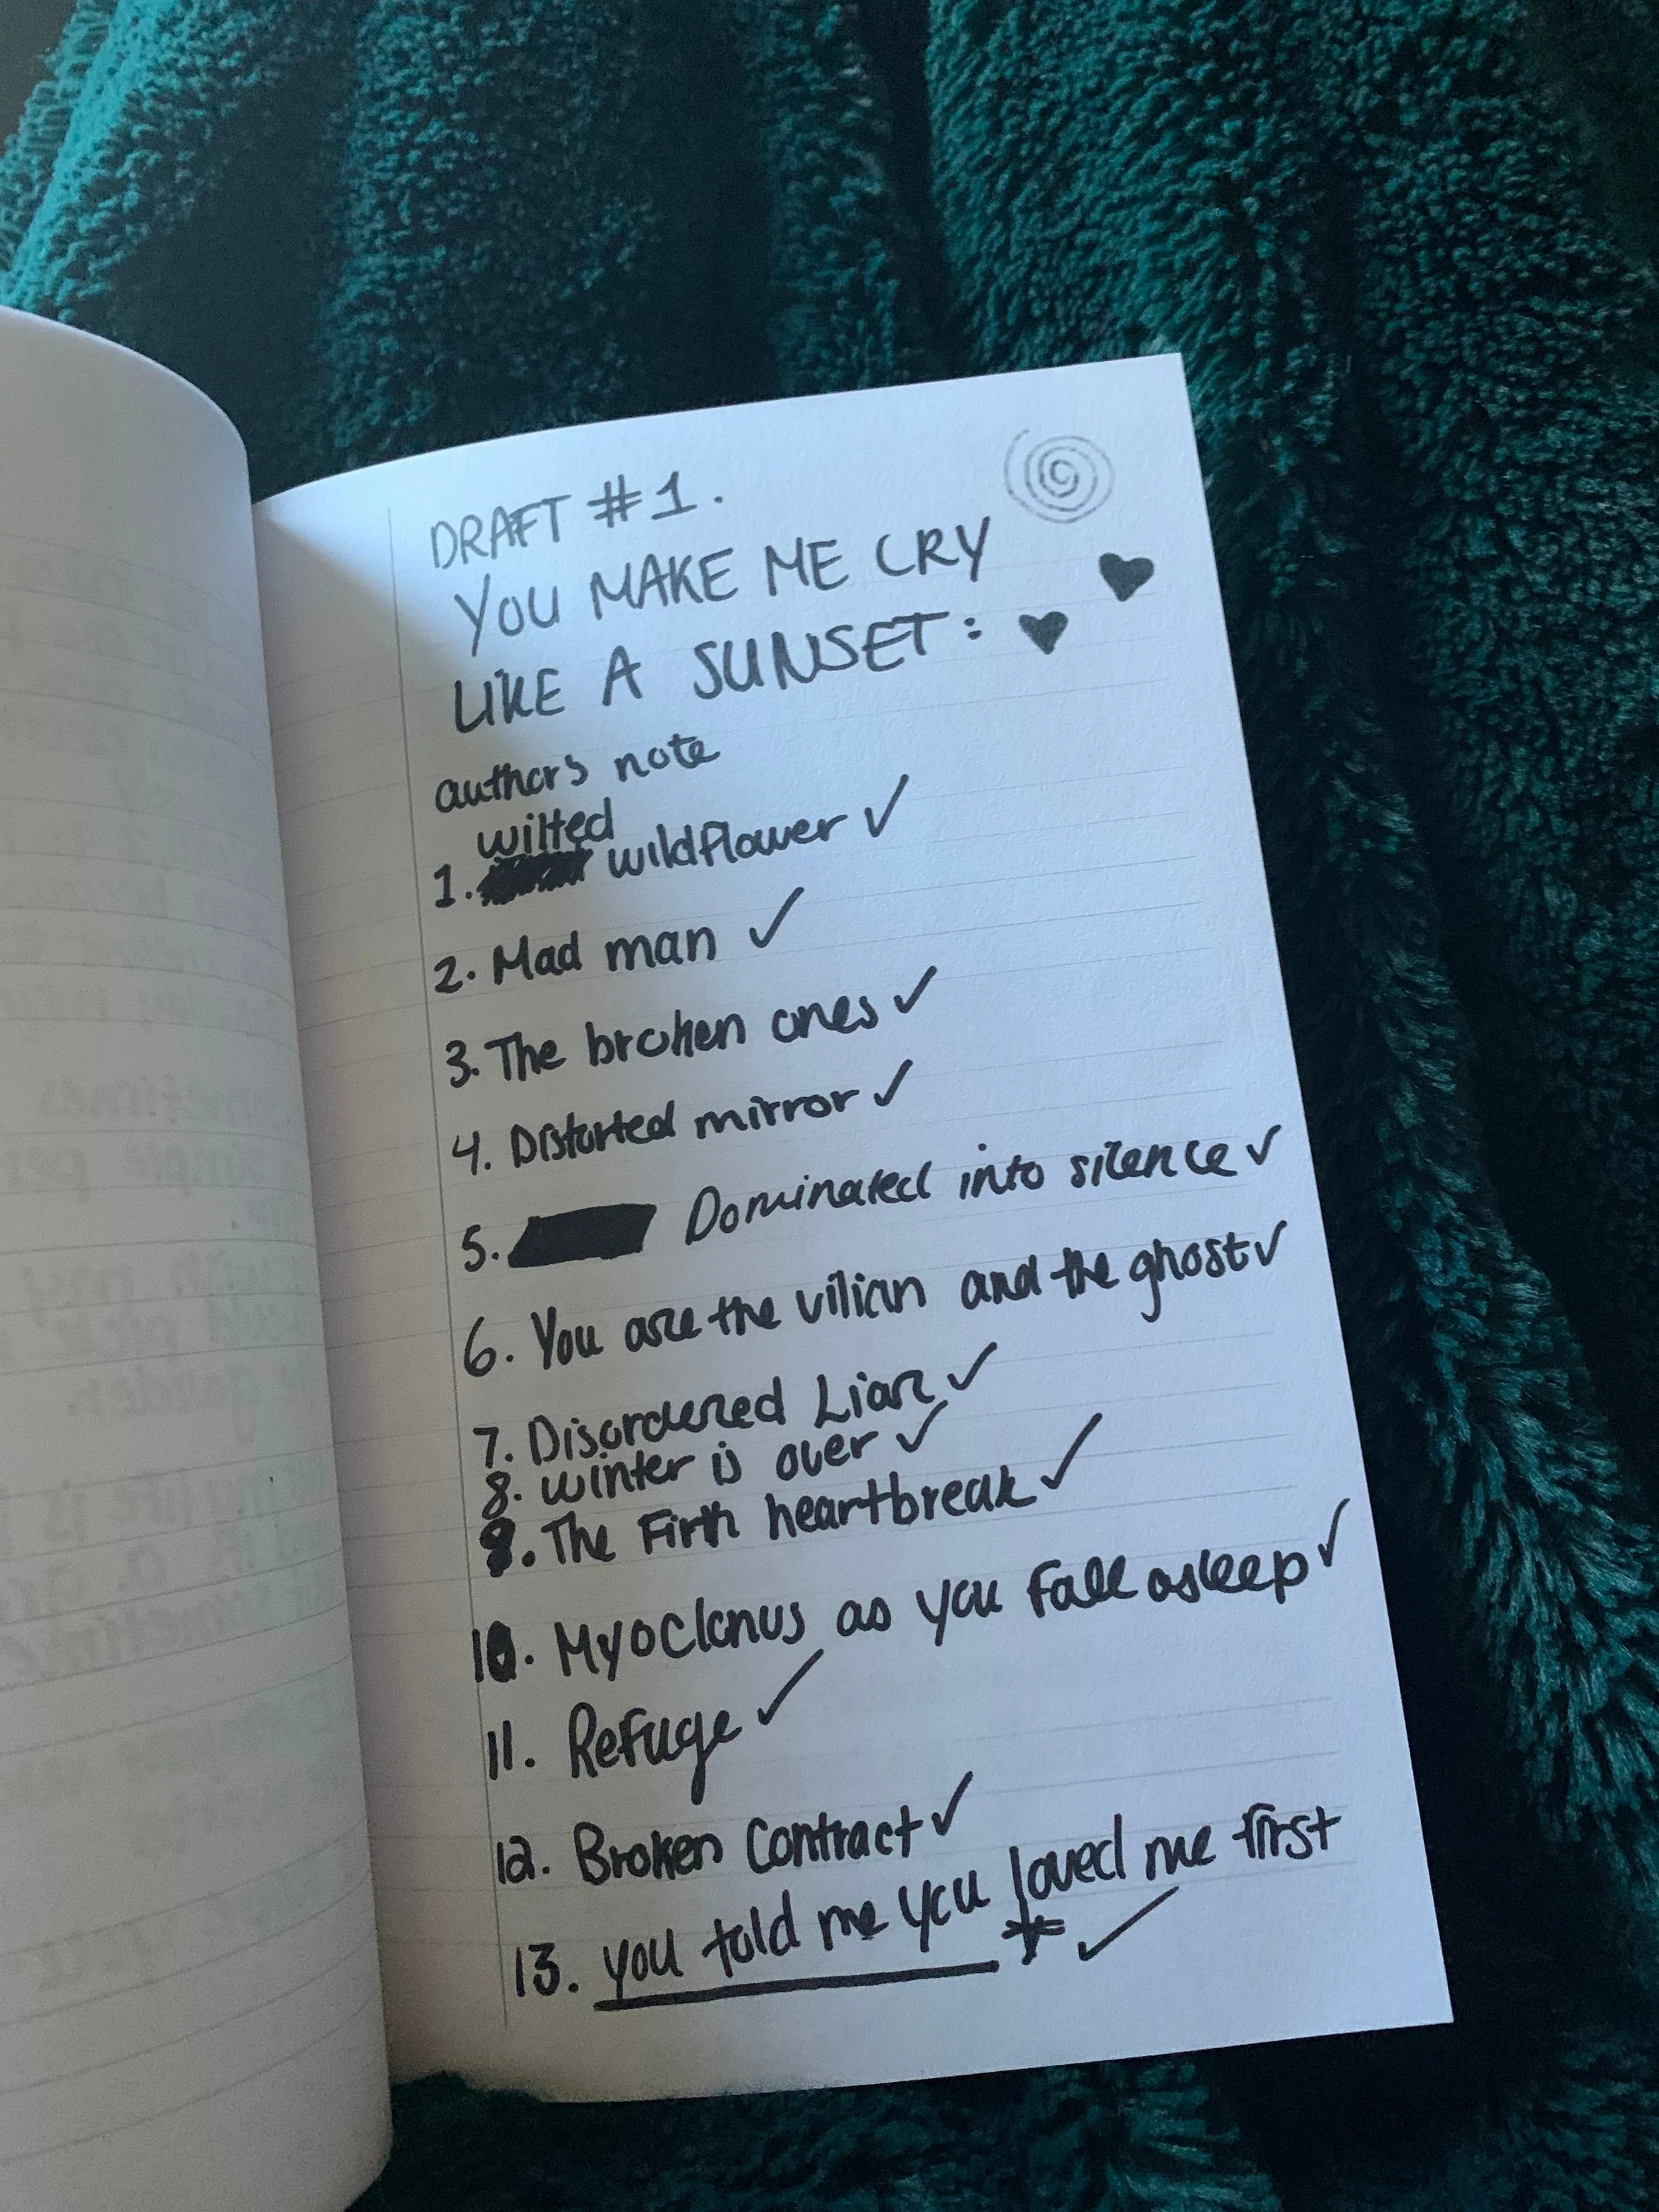 DRAFT #1.
YOU MAKE ME CRY
LIKE A SUNSET:
authors note
wilted
1. wildflower ✓
2. Mad man ✓
3. The broken ones ✓
4. Distorted mirror ✓
5. Dominated into silence ✓
6. You are the vilian and the ghost ✓
7. Disordered Liar ✓
8. winter is over ✓
9. The Firth heartbreak ✓
10. Myoclonus as you fall asleep ✓
11. Refuge ✓
12. Broken Contract ✓
13. you told me you loved me first
* ✓